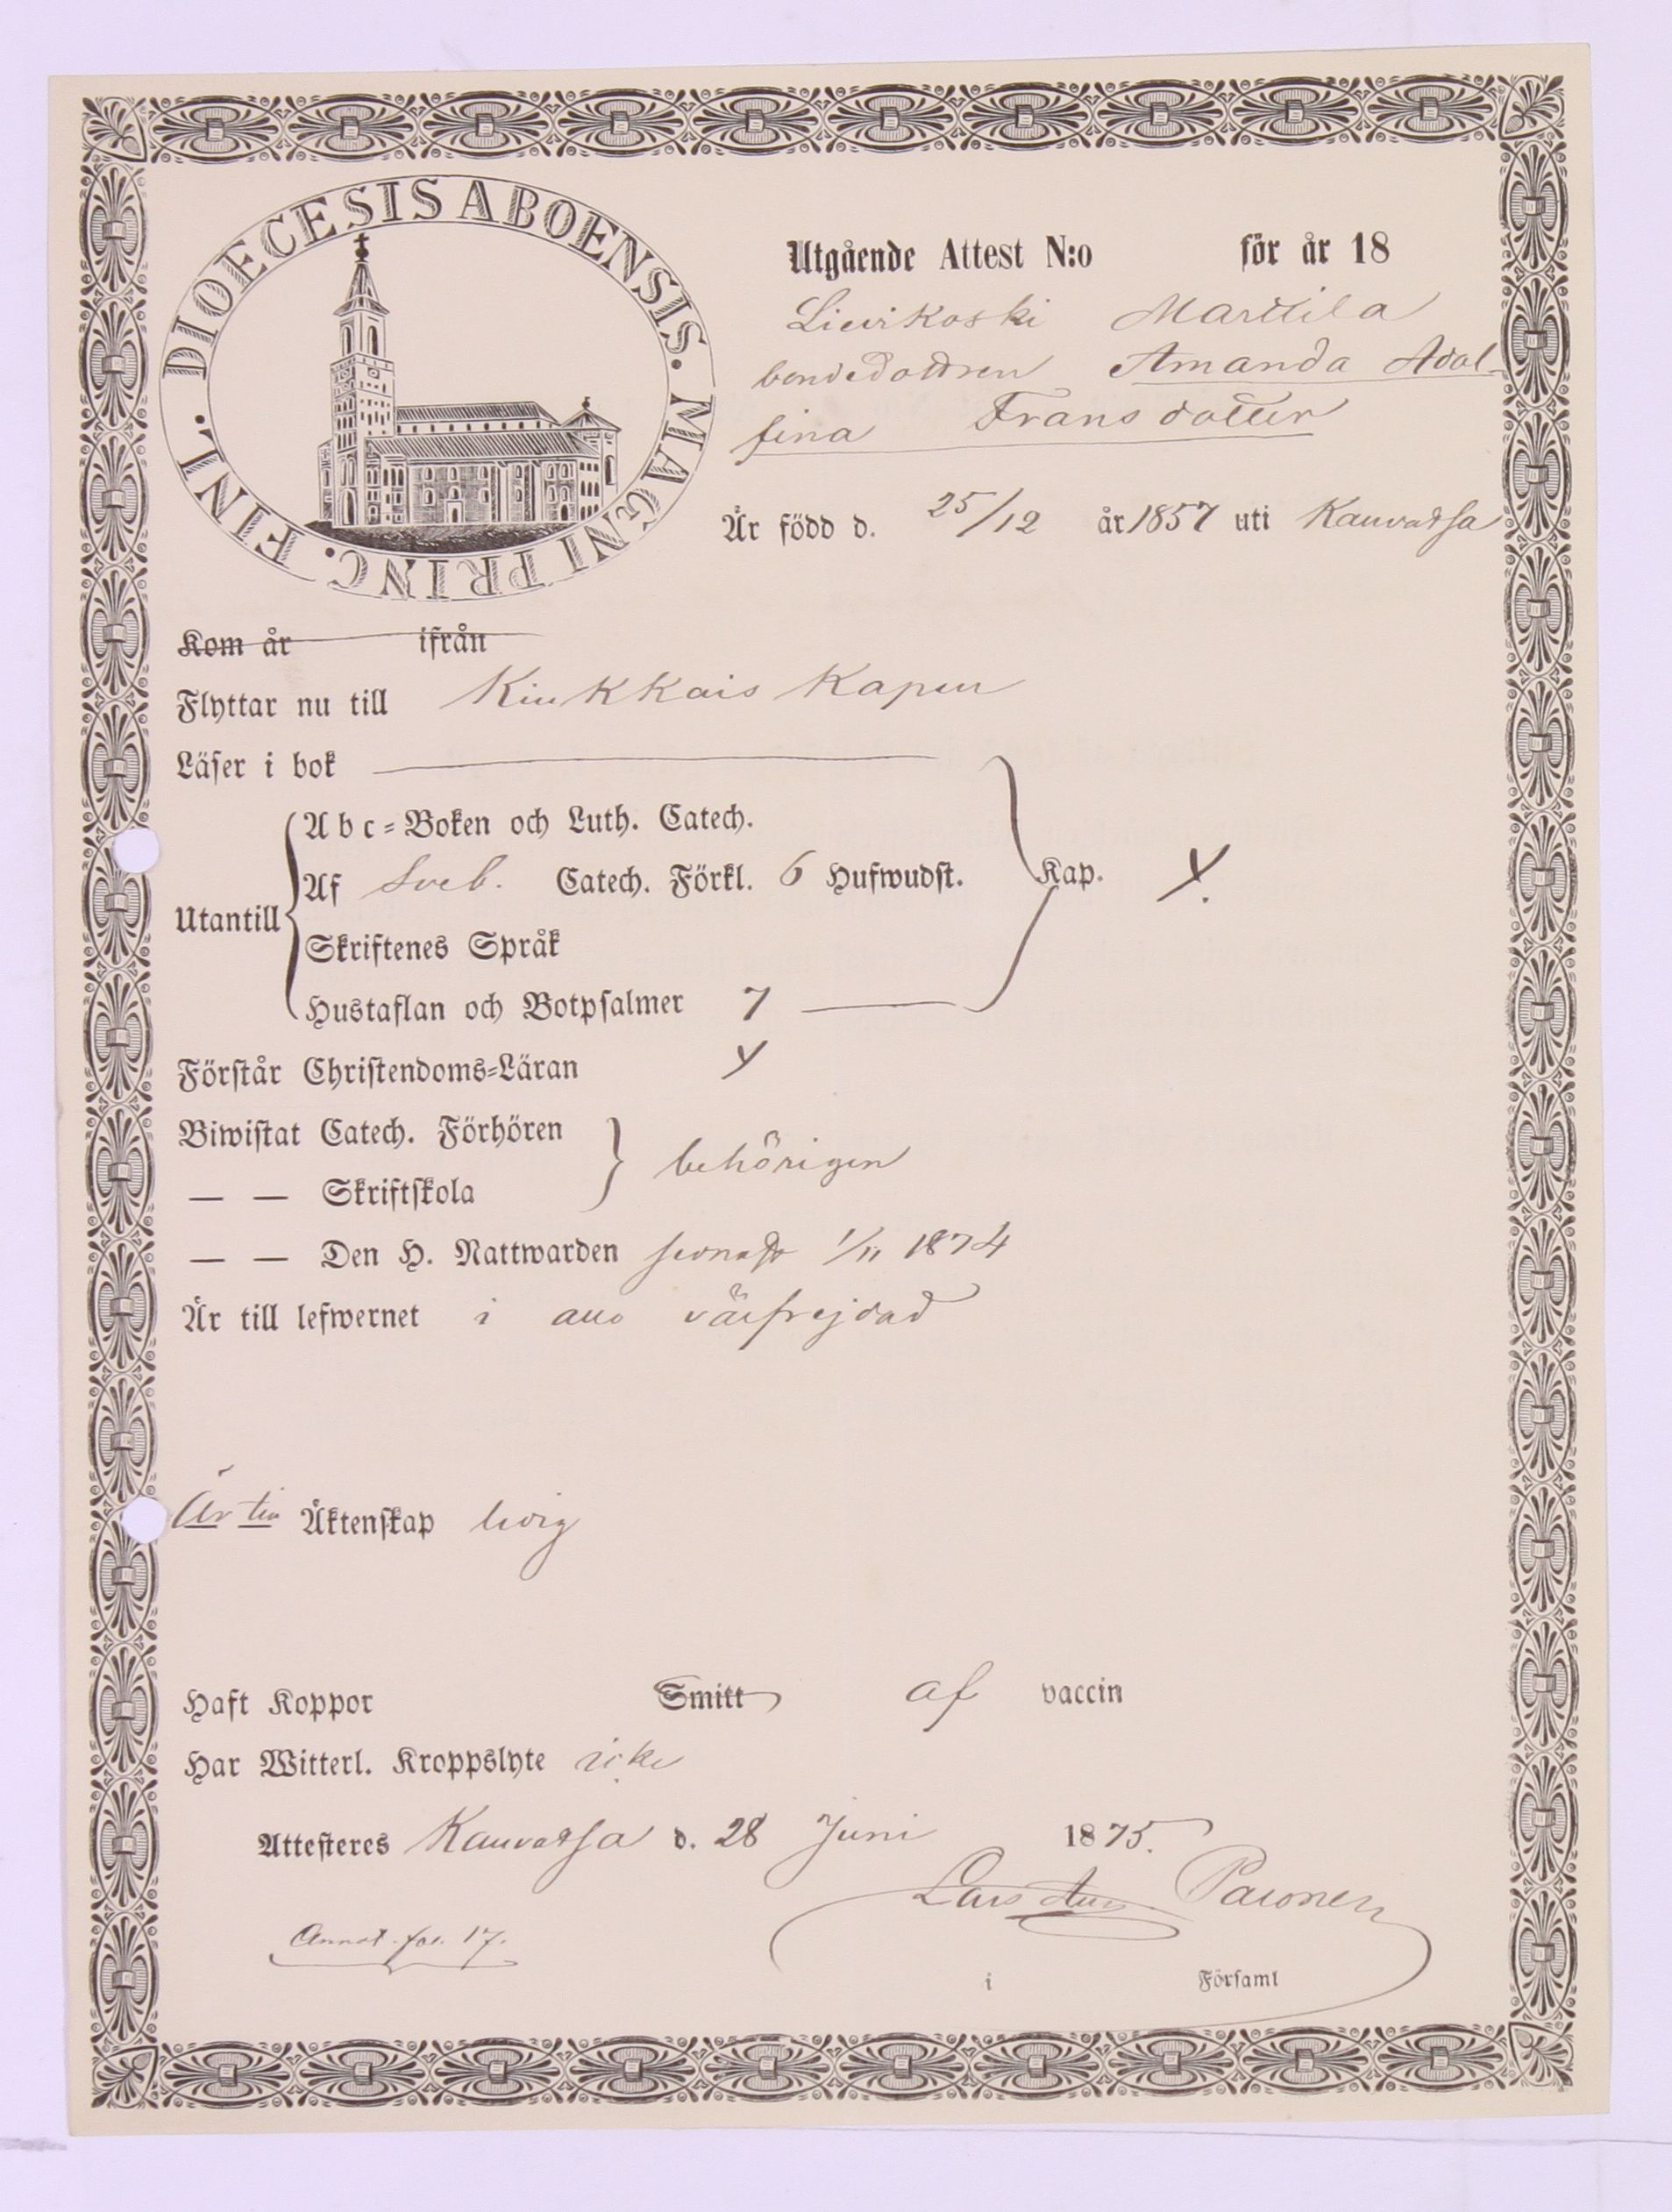 DIOECESIS ABOENSIS. MAGNI PRINC. FINL.
Utgående Attest N:o för år 18
Lievikoski Marttila
bondedottren Amanda Adol-
fina Fransdotter
Är född d. 25/12 år 1857 uti Kauvatsa
Kom år ifrån
Flyttar nu till Kiukkais Kapell
Läser i bok
Abc-Boken och Luth. Catech.
Af Sveb. Catech. Förkl. 6 Hufwudst. Kap. X.
Utantill
Skriftenes Språk
Hustaflan och Botpsalmer 7
Förstår Christendoms-Läran X
Biwistat Catech. Förhören
behörigen
— — Skriftskola
— — Den H. Nattwarden senast 1/11 1874
Är till lefwernet i allo välfrejdad
Är till Äktenskap ledig
Haft Koppor Smitt af vaccin
Har Witterl. Kroppslyte icke
Attesteres Kauvatsa d. 28 Juni 1875.
Lars Paronen
Annot. fol. 17.
i Församl